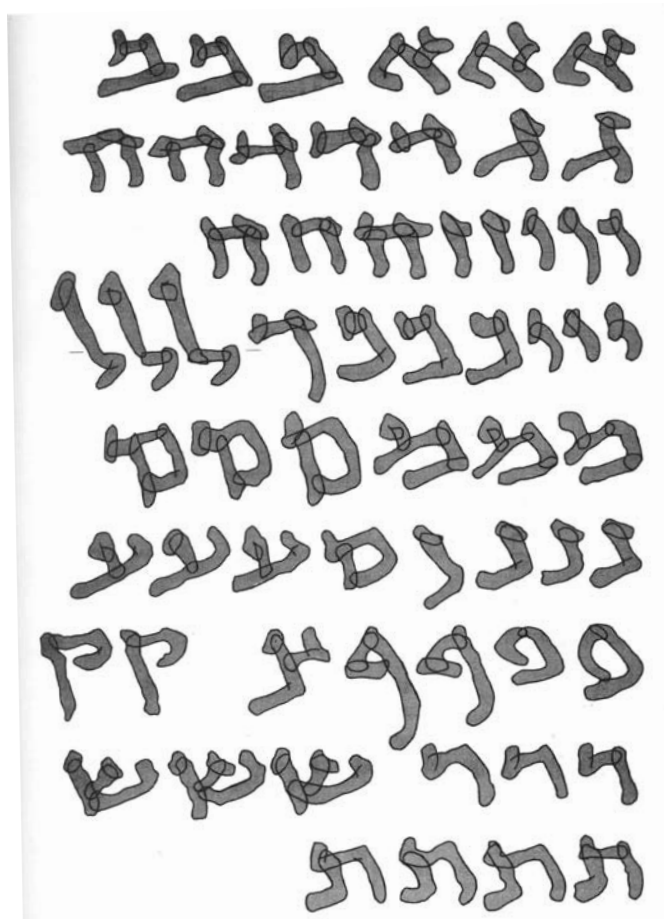 א א א ב ב ב
ג ג ד ד ד ה ה
ו ו ו ז ז ח ח ח
י י י כ כ כ ך ל ל ל
מ מ מ ם ם ם
נ נ נ ן ס ע ע ע
פ פ ף ף צ ק ק
ר ר ר ש ש ש
ת ת ת ת